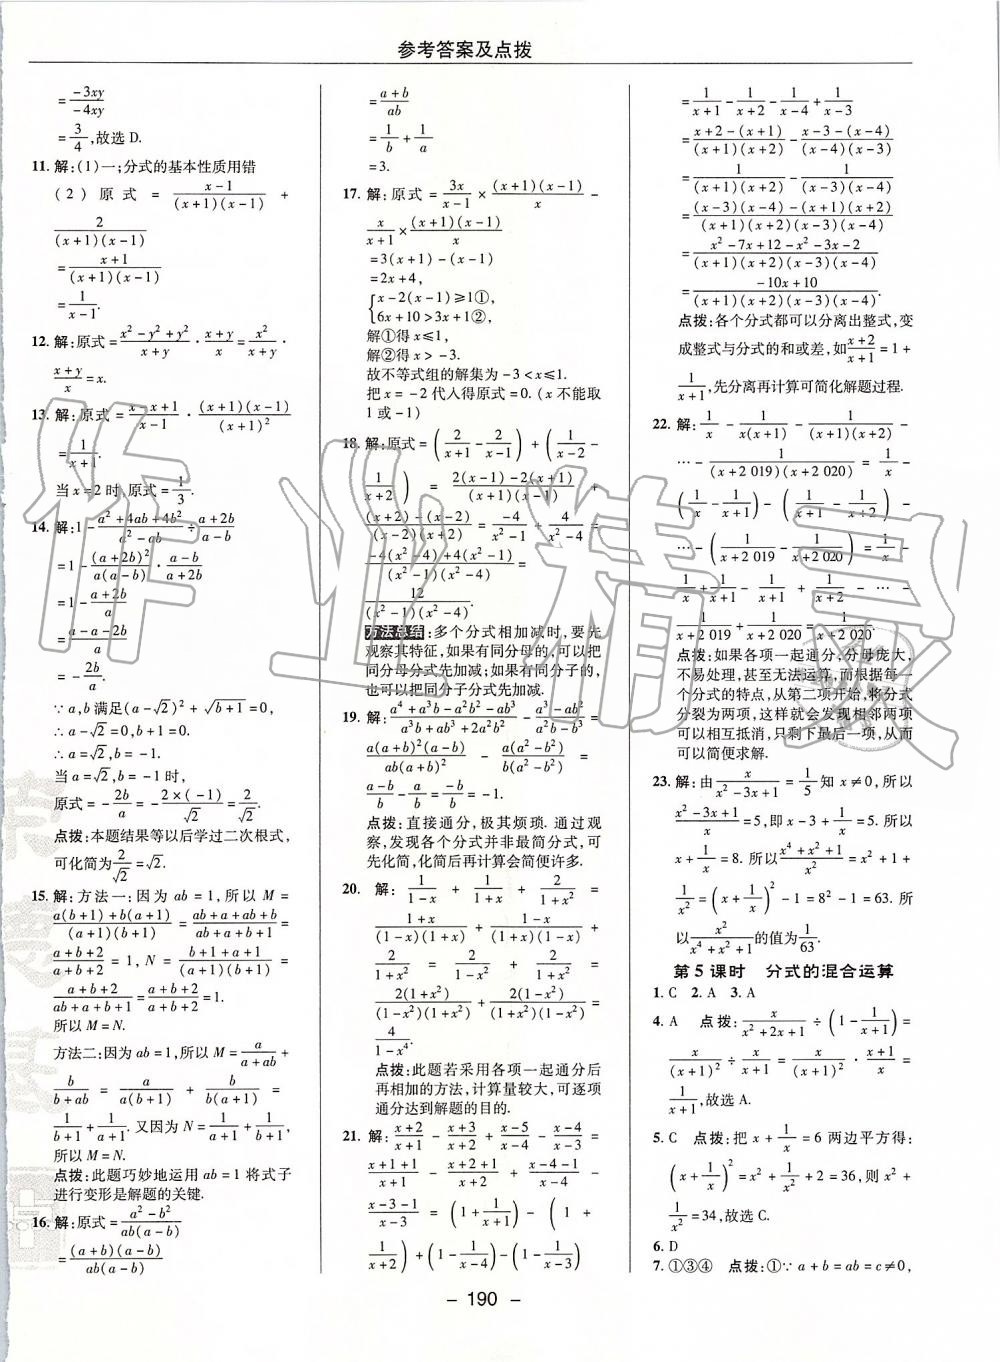 参考答案及点拨
=\frac{-3xy}{-4xy}
=\frac{3}{4},故选 D.
11. 解:(1)一;分式的基本性质用错
(2) 原式 = \frac{x-1}{(x+1)(x-1)} +
\frac{2}{(x+1)(x-1)}
=\frac{x+1}{(x+1)(x-1)}
=\frac{1}{x-1}.
12. 解:原式=\frac{x^2-y^2+y^2}{x+y}·\frac{x+y}{x}=\frac{x^2}{x+y}·
\frac{x+y}{x}=x.
13. 解:原式=\frac{x-x+1}{x-1}·\frac{(x+1)(x-1)}{(x+1)^2}
=\frac{1}{x+1}.
当 x=2 时,原式=\frac{1}{3}.
14. 解:1-\frac{a^2+4ab+4b^2}{a^2-ab}÷\frac{a+2b}{a-b}
=1-\frac{(a+2b)^2}{a(a-b)}·\frac{a-b}{a+2b}
=1-\frac{a+2b}{a}
=\frac{a-a-2b}{a}
=-\frac{2b}{a}.
∵a,b 满足(a-√2)^2+√(b+1)=0,
∴a-√2=0,b+1=0,
∴a=√2,b=-1.
当 a=√2,b=-1 时,
原式=-\frac{2b}{a}=-\frac{2×(-1)}{√2}=\frac{2}{√2}.
点拨:本题结果等以后学过二次根式,
可化简为\frac{2}{√2}=√2.
15. 解:方法一:因为 ab=1,所以 M=
\frac{a(b+1)+b(a+1)}{(a+1)(b+1)}=\frac{ab+a+ab+b}{ab+a+b+1}=
\frac{a+b+2}{a+b+2}=1,N=\frac{b+1+a+1}{(a+1)(b+1)}=
\frac{a+b+2}{ab+a+b+1}=\frac{a+b+2}{a+b+2}=1.
所以 M=N.
方法二:因为 ab=1,所以 M=\frac{a}{a+ab}+
\frac{b}{b+ab}=\frac{a}{a(b+1)}+\frac{b}{b(a+1)}=
\frac{1}{b+1}+\frac{1}{a+1}. 又因为 N=\frac{1}{a+1}+\frac{1}{b+1},
所以 M=N.
点拨:此题巧妙地运用 ab=1 将式子
进行变形是解题的关键.
16. 解:原式=\frac{a^2-b^2}{ab(a-b)}
=\frac{(a+b)(a-b)}{ab(a-b)}
=\frac{a+b}{ab}
=\frac{1}{b}+\frac{1}{a}
=3.
17. 解:原式=\frac{3x}{x-1}×\frac{(x+1)(x-1)}{x}-
\frac{x}{x+1}×\frac{(x+1)(x-1)}{x}
=3(x+1)-(x-1)
=2x+4,
{x-2(x-1)≥1①,
6x+10>3x+1②,
解①得 x≤1,
解②得 x>-3.
故不等式组的解集为-3<x≤1.
把 x=-2 代入得原式=0. (x 不能取
1或-1)
18. 解:原式=(\frac{2}{x+1}-\frac{2}{x-1})+(\frac{1}{x-2}-
\frac{1}{x+2})=\frac{2(x-1)-2(x+1)}{(x+1)(x-1)}+
\frac{(x+2)-(x-2)}{(x-2)(x+2)}=\frac{-4}{x^2-1}+\frac{4}{x^2-4}=
\frac{-4(x^2-4)+4(x^2-1)}{(x^2-1)(x^2-4)}=
\frac{12}{(x^2-1)(x^2-4)}.
方法总结:多个分式相加减时,要先
观察其特征,如果有同分母的,可以把
同分母分式先加减;如果有同分子的,
也可以把同分子分式先加减.
19. 解:\frac{a^4+a^3b-a^2b^2-ab^3}{a^3b+ab^3+2a^2b^2}-\frac{a^3-ab^2}{a^2b-b^3}=
\frac{a(a+b)^2(a-b)}{ab(a+b)^2}-\frac{a(a^2-b^2)}{b(a^2-b^2)}=
\frac{a-b}{b}-\frac{a}{b}=-1.
点拨:直接通分,极其烦琐. 通过观
察,发现各个分式并非最简分式,可
先化简,化简后再计算会简便许多.
20. 解:\frac{1}{1-x}+\frac{1}{1+x}+\frac{2}{1+x^2}=
\frac{1+x}{(1-x)(1+x)}+\frac{1-x}{(1-x)(1+x)}+
\frac{2}{1+x^2}=\frac{2}{1-x^2}+\frac{2}{1+x^2}=
\frac{2(1+x^2)}{(1-x^2)(1+x^2)}+\frac{2(1-x^2)}{(1-x^2)(1+x^2)}=
\frac{4}{1-x^4}.
点拨:此题若采用各项一起通分后
再相加的方法,计算量较大,可逐项
通分达到解题的目的.
21. 解:\frac{x+2}{x+1}-\frac{x+3}{x+2}+\frac{x-5}{x-4}-\frac{x-4}{x-3}=
\frac{x+1+1}{x+1}-\frac{x+2+1}{x+2}+\frac{x-4-1}{x-4}-
\frac{x-3-1}{x-3}=(1+\frac{1}{x+1})-(1+
\frac{1}{x+2})+(1-\frac{1}{x-4})-(1-\frac{1}{x-3})=
\frac{1}{x+1}-\frac{1}{x+2}-\frac{1}{x-4}+\frac{1}{x-3}=
\frac{x+2-(x+1)}{(x+1)(x+2)}-\frac{x-3-(x-4)}{(x-4)(x-3)}=
\frac{1}{(x+1)(x+2)}-\frac{1}{(x-3)(x-4)}=
\frac{(x-3)(x-4)-(x+1)(x+2)}{(x+1)(x+2)(x-3)(x-4)}=
\frac{x^2-7x+12-x^2-3x-2}{(x+1)(x+2)(x-3)(x-4)}=
\frac{-10x+10}{(x+1)(x+2)(x-3)(x-4)}.
点拨:各个分式都可以分离出整式,变
成整式与分式的和或差,如\frac{x+2}{x+1}=1+
\frac{1}{x+1},先分离再计算可简化解题过程.
22. 解:\frac{1}{x}-\frac{1}{x(x+1)}-\frac{1}{(x+1)(x+2)}-
…-\frac{1}{(x+2 019)(x+2 020)}=\frac{1}{x}-
(\frac{1}{x}-\frac{1}{x+1})-(\frac{1}{x+1}-\frac{1}{x+2})-
…-(\frac{1}{x+2 019}-\frac{1}{x+2 020})=\frac{1}{x}-
\frac{1}{x}+\frac{1}{x+1}-\frac{1}{x+1}+\frac{1}{x+2}-…-
\frac{1}{x+2 019}+\frac{1}{x+2 020}=\frac{1}{x+2 020}.
点拨:如果各项一起通分,分母庞大,
不易处理,甚至无法运算,而根据每一
个分式的特点,从第二项开始,将分式
分裂为两项,这样就会发现相邻两项
可以相互抵消,只剩下最后一项,从而
可以简便求解.
23. 解:由\frac{x}{x^2-3x+1}=\frac{1}{5}知 x≠0,所以
\frac{x^2-3x+1}{x}=5,即 x-3+\frac{1}{x}=5. 所以
x+\frac{1}{x}=8. 所以\frac{x^4+x^2+1}{x^2}=x^2+1+
\frac{1}{x^2}=(x+\frac{1}{x})^2-1=8^2-1=63. 所
以\frac{x^2}{x^4+x^2+1}的值为\frac{1}{63}.
第 5 课时 分式的混合运算
1. C 2. A 3. A
4. A 点拨:\frac{x}{x^2+2x+1}÷(1-\frac{1}{x+1})=
\frac{x}{(x+1)^2}÷\frac{x}{x+1}=\frac{x}{(x+1)^2}·\frac{x+1}{x}=
\frac{1}{x+1},故选 A.
5. C 点拨:把 x+\frac{1}{x}=6 两边平方得:
(x+\frac{1}{x})^2=x^2+\frac{1}{x^2}+2=36,则 x^2+
\frac{1}{x^2}=34,故选 C.
6. D
7. ①③④ 点拨:①∵a+b=ab=c≠0,
- 190 -
作业精灵